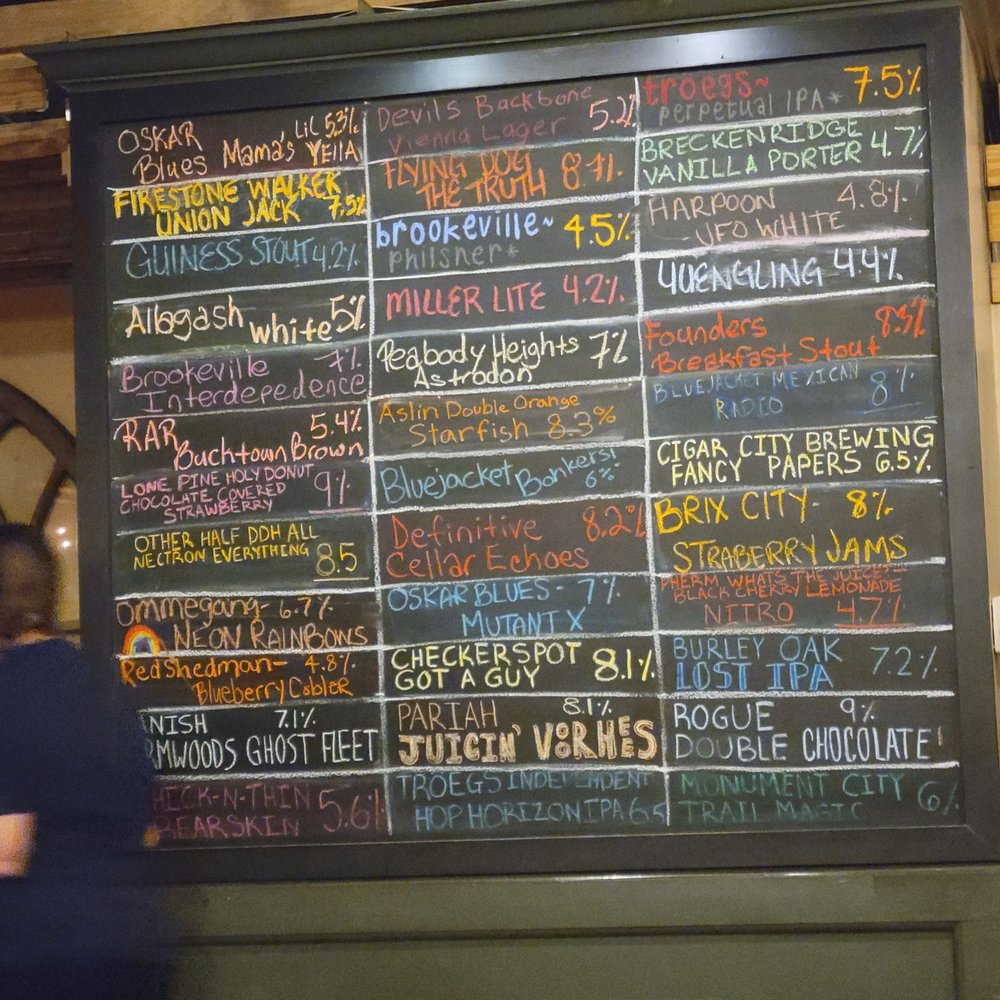 OSKAR Lil 5.3%
Blues Mama's YEllA
FIRESTONE WALKER
UNION JACK 7.5%
GUINESS STOUT 4.2%
Allagash White 5%
Brookeville 7%
Interdepedence
RAR 5.4%
Bucktown Brown
LONE PINE HOLY DONUT
CHOCOLATE COVERED 9%
STRAWBERRY
OTHER HALF DDH ALL
NECTRON EVERYTHING 8.5
Ommegang- 6.7%
NEON RAINBOWS
Red Shedman- 4.8%
Blueberry Cobler
NISH 7.1%
RMWOODS GHOST FLEET
HICK-N-THIN 5.6%
EARSKIN
Devils Backbone
Vienna Lager 5.2%
FLYING DOG
THE TRUTH 8.7%
brookeville~ 4.5%
philsner*
MILLER LITE 4.2%
Peabody Heights 7%
Astrodon
Aslin Double Orange
Starfish 8.3%
Bluejacket Bonkers!
6%
Definitive 8.2%
Cellar Echoes
OSKAR BLUES- 7%
MUTANT X
CHECKERSPOT
GOT A GUY 8.1%
PARIAH 8.1%
JUICIN' VOORHEES
TROEGS INDEPENDENT
HOP HORIZON IPA
troegs~ 7.5%
perpetual IPA*
BRECKENRIDGE
VANILLA PORTER 4.7%
HARPOON 4.8%
-UFO WHITE
YUENGLING 4.4%
Founders 8.5%
Breakfast Stout
BLUEJACKET MEXICAN 8%
RADIO
CIGAR CITY BREWING
FANCY PAPERS 6.5%
BRIX CITY- 8%
STRABERRY JAMS
PHERM. WHATS THE JUICE-
BLACK CHERRY LEMONADE
NITRO 4.7%
BURLEY OAK 7.2%
LOST IPA
ROGUE 9%
DOUBLE CHOCOLATE
MONUMENT CITY 6%
TRAIL MAGIC